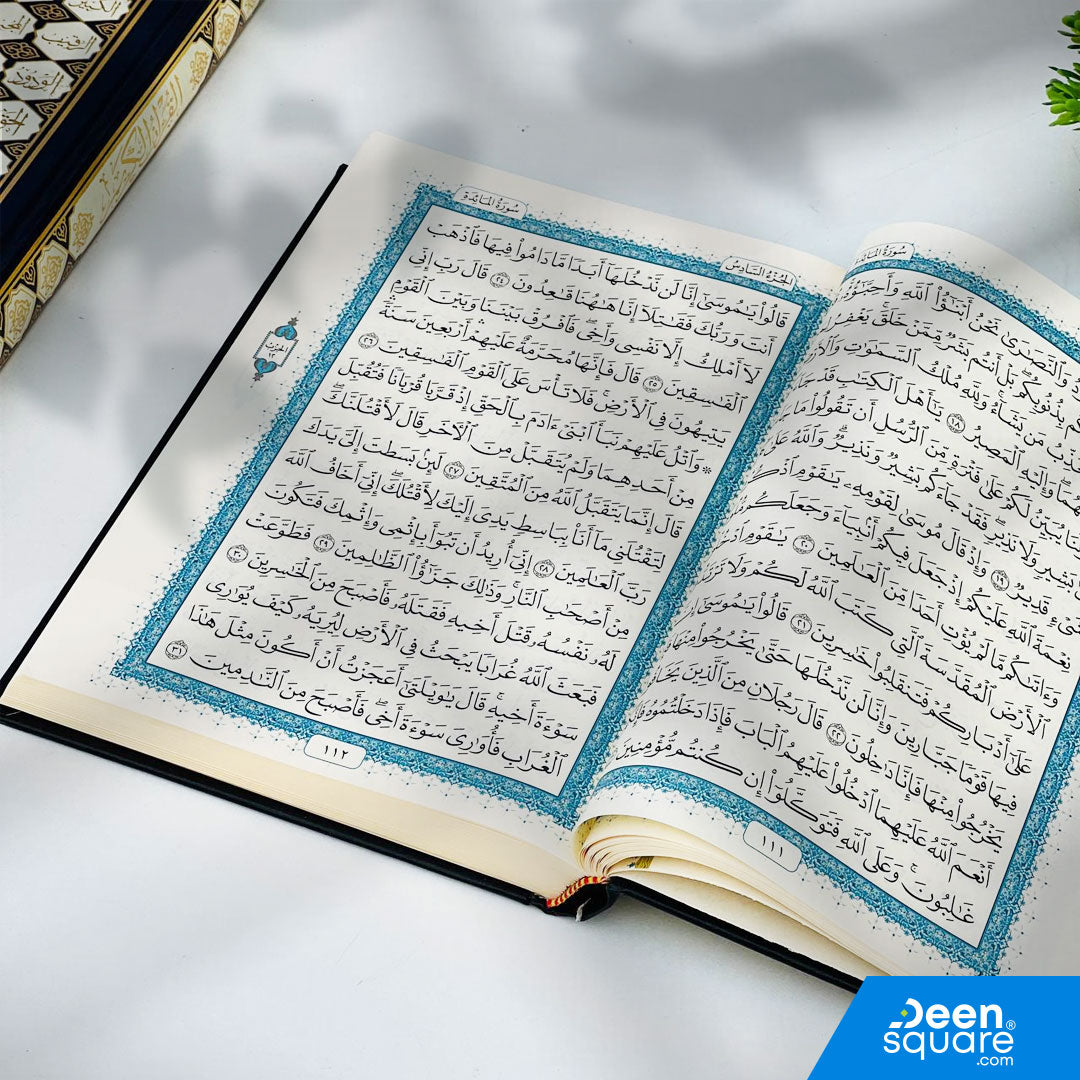 سُورَةُ المَائِدَةِ
وَٱلنَّصَٰرَىٰ نَحْنُ أَبْنَٰٓؤُا۟ ٱللَّهِ
بِذُنُوبِكُم ۖ بَلْ أَنتُم بَشَرٌ مِّمَّنْ خَلَقَ ۚ يَغْفِرُ
مَن يَشَآءُ ۚ وَلِلَّهِ مُلْكُ ٱلسَّمَٰوَٰتِ
وَإِلَيْهِ ٱلْمَصِيرُ ١٨ يَٰٓأَهْلَ ٱلْكِتَٰبِ قَدْ
يُبَيِّنُ لَكُمْ عَلَىٰ فَتْرَةٍ مِّنَ ٱلرُّسُلِ أَن تَقُولُوا۟ مَا
بَشِيرٍ وَلَا نَذِيرٍ ۖ فَقَدْ جَآءَكُم بَشِيرٌ وَنَذِيرٌ ۗ وَٱللَّهُ عَلَىٰ
قَدِيرٌ ١٩ وَإِذْ قَالَ مُوسَىٰ لِقَوْمِهِۦ يَٰقَوْمِ
نِعْمَةَ ٱللَّهِ عَلَيْكُمْ إِذْ جَعَلَ فِيكُمْ أَنۢبِيَآءَ وَجَعَلَكُم
وَءَاتَىٰكُم مَّا لَمْ يُؤْتِ أَحَدًا مِّنَ ٱلْعَٰلَمِينَ ٢٠ يَٰقَوْمِ
ٱلْأَرْضَ ٱلْمُقَدَّسَةَ ٱلَّتِى كَتَبَ ٱللَّهُ لَكُمْ وَلَا
عَلَىٰٓ أَدْبَارِكُمْ فَتَنقَلِبُوا۟ خَٰسِرِينَ ٢١ قَالُوا۟ يَٰمُوسَىٰٓ
فِيهَا قَوْمًا جَبَّارِينَ وَإِنَّا لَن نَّدْخُلَهَا حَتَّىٰ يَخْرُجُوا۟ مِنْهَا
يَخْرُجُوا۟ مِنْهَا فَإِنَّا دَٰخِلُونَ ٢٢ قَالَ رَجُلَانِ مِنَ ٱلَّذِينَ
أَنْعَمَ ٱللَّهُ عَلَيْهِمَا ٱدْخُلُوا۟ عَلَيْهِمُ ٱلْبَابَ فَإِذَا دَخَلْتُمُوهُ
غَٰلِبُونَ ۚ وَعَلَى ٱللَّهِ فَتَوَكَّلُوٓا۟ إِن كُنتُم مُّؤْمِنِينَ
١١١
الجُزْءُ السَّادِسُ
سُورَةُ المَائِدَةِ
قَالُوا۟ يَٰمُوسَىٰٓ إِنَّا لَن نَّدْخُلَهَآ أَبَدًا مَّا دَامُوا۟ فِيهَا ۖ فَٱذْهَبْ
أَنتَ وَرَبُّكَ فَقَٰتِلَآ إِنَّا هَٰهُنَا قَٰعِدُونَ ٢٤ قَالَ رَبِّ إِنِّى
لَآ أَمْلِكُ إِلَّا نَفْسِى وَأَخِى ۖ فَٱفْرُقْ بَيْنَنَا وَبَيْنَ ٱلْقَوْمِ
ٱلْفَٰسِقِينَ ٢٥ قَالَ فَإِنَّهَا مُحَرَّمَةٌ عَلَيْهِمْ ۛ أَرْبَعِينَ سَنَةً ۛ
يَتِيهُونَ فِى ٱلْأَرْضِ ۚ فَلَا تَأْسَ عَلَى ٱلْقَوْمِ ٱلْفَٰسِقِينَ ٢٦
۞ وَٱتْلُ عَلَيْهِمْ نَبَأَ ٱبْنَىْ ءَادَمَ بِٱلْحَقِّ إِذْ قَرَّبَا قُرْبَانًا فَتُقُبِّلَ
مِنْ أَحَدِهِمَا وَلَمْ يُتَقَبَّلْ مِنَ ٱلْءَاخَرِ قَالَ لَأَقْتُلَنَّكَ ۖ
قَالَ إِنَّمَا يَتَقَبَّلُ ٱللَّهُ مِنَ ٱلْمُتَّقِينَ ٢٧ لَئِنۢ بَسَطتَ إِلَىَّ يَدَكَ
لِتَقْتُلَنِى مَآ أَنَا۠ بِبَاسِطٍ يَدِىَ إِلَيْكَ لِأَقْتُلَكَ ۖ إِنِّىٓ أَخَافُ ٱللَّهَ
رَبَّ ٱلْعَٰلَمِينَ ٢٨ إِنِّىٓ أُرِيدُ أَن تَبُوٓأَ بِإِثْمِى وَإِثْمِكَ فَتَكُونَ
مِنْ أَصْحَٰبِ ٱلنَّارِ ۚ وَذَٰلِكَ جَزَٰٓؤُا۟ ٱلظَّٰلِمِينَ ٢٩ فَطَوَّعَتْ
لَهُۥ نَفْسُهُۥ قَتْلَ أَخِيهِ فَقَتَلَهُۥ فَأَصْبَحَ مِنَ ٱلْخَٰسِرِينَ ٣٠
فَبَعَثَ ٱللَّهُ غُرَابًا يَبْحَثُ فِى ٱلْأَرْضِ لِيُرِيَهُۥ كَيْفَ يُوَٰرِى
سَوْءَةَ أَخِيهِ ۚ قَالَ يَٰوَيْلَتَىٰٓ أَعَجَزْتُ أَنْ أَكُونَ مِثْلَ هَٰذَا
ٱلْغُرَابِ فَأُوَٰرِىَ سَوْءَةَ أَخِى ۖ فَأَصْبَحَ مِنَ ٱلنَّٰدِمِينَ ٣١
١١٢
الحِزْبُ
١٢
Deen
square®
.com